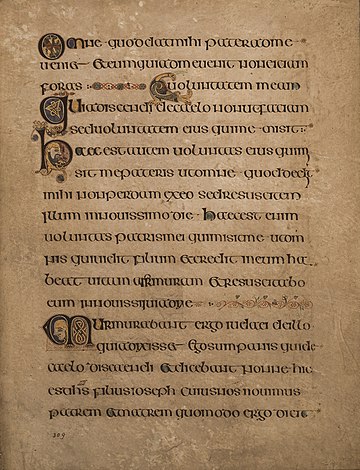 Omne quod dat mihi pater ad me
ueniet & eum qui ad me uenit non eiciam
foras uoluntatem meam
Quia discendi de caelo non ut faciam
sed uoluntatem eius qui me misit
Haec est autem uoluntas eius qui mi
sit me patris ut omne quod dedit
mihi non perdam ex eo sed resuscitem
illum in nouissimo die haec est enim
uoluntas patris mei qui misit me ut om
nis qui uidet filium & credit in eum ha
beat uitam &resuscitabo
eum in nouissimo die
Murmurabant ergo iudaei de illo
quia dixisset ego sum panis qui de
caelo discendi & dicebant nonne hic
est ihs filius ioseph cuius nos nouimus
patrem & matrem quomodo ergo dicit
309